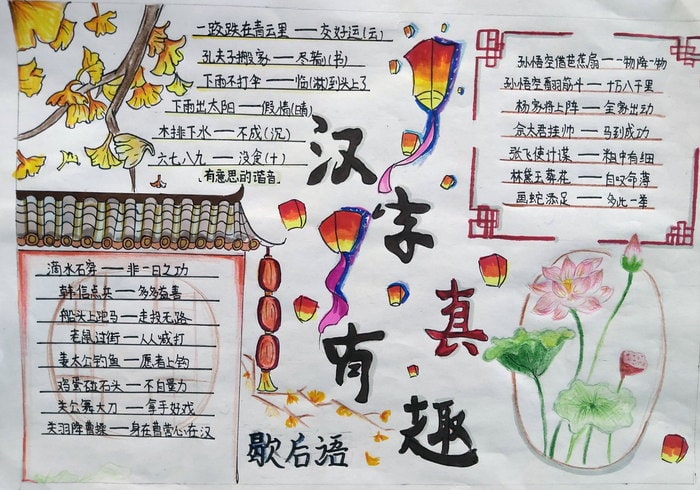 一跤跌在青云里——交好运(云)
孔夫子搬家——尽输(书)
下雨不打伞——临(淋)到头上了
下雨出太阳——假情(晴)
木排下水——不成(沉)
六七八九——没食(十)
有意思的谐音
汉字真有趣
孙悟空借芭蕉扇——一物降一物
孙悟空翻筋斗——十万八千里
杨家将上阵——全家出动
佘太君挂帅——马到成功
张飞使计谋——粗中有细
林黛玉葬花——自叹命薄
画蛇添足——多此一举
滴水石穿——非一日之功
韩信点兵——多多益善
船头上跑马——走投无路
老鼠过街——人人喊打
姜太公钓鱼——愿者上钩
鸡蛋碰石头——不自量力
关公舞大刀——拿手好戏
关羽降曹操——身在曹营心在汉
歇后语